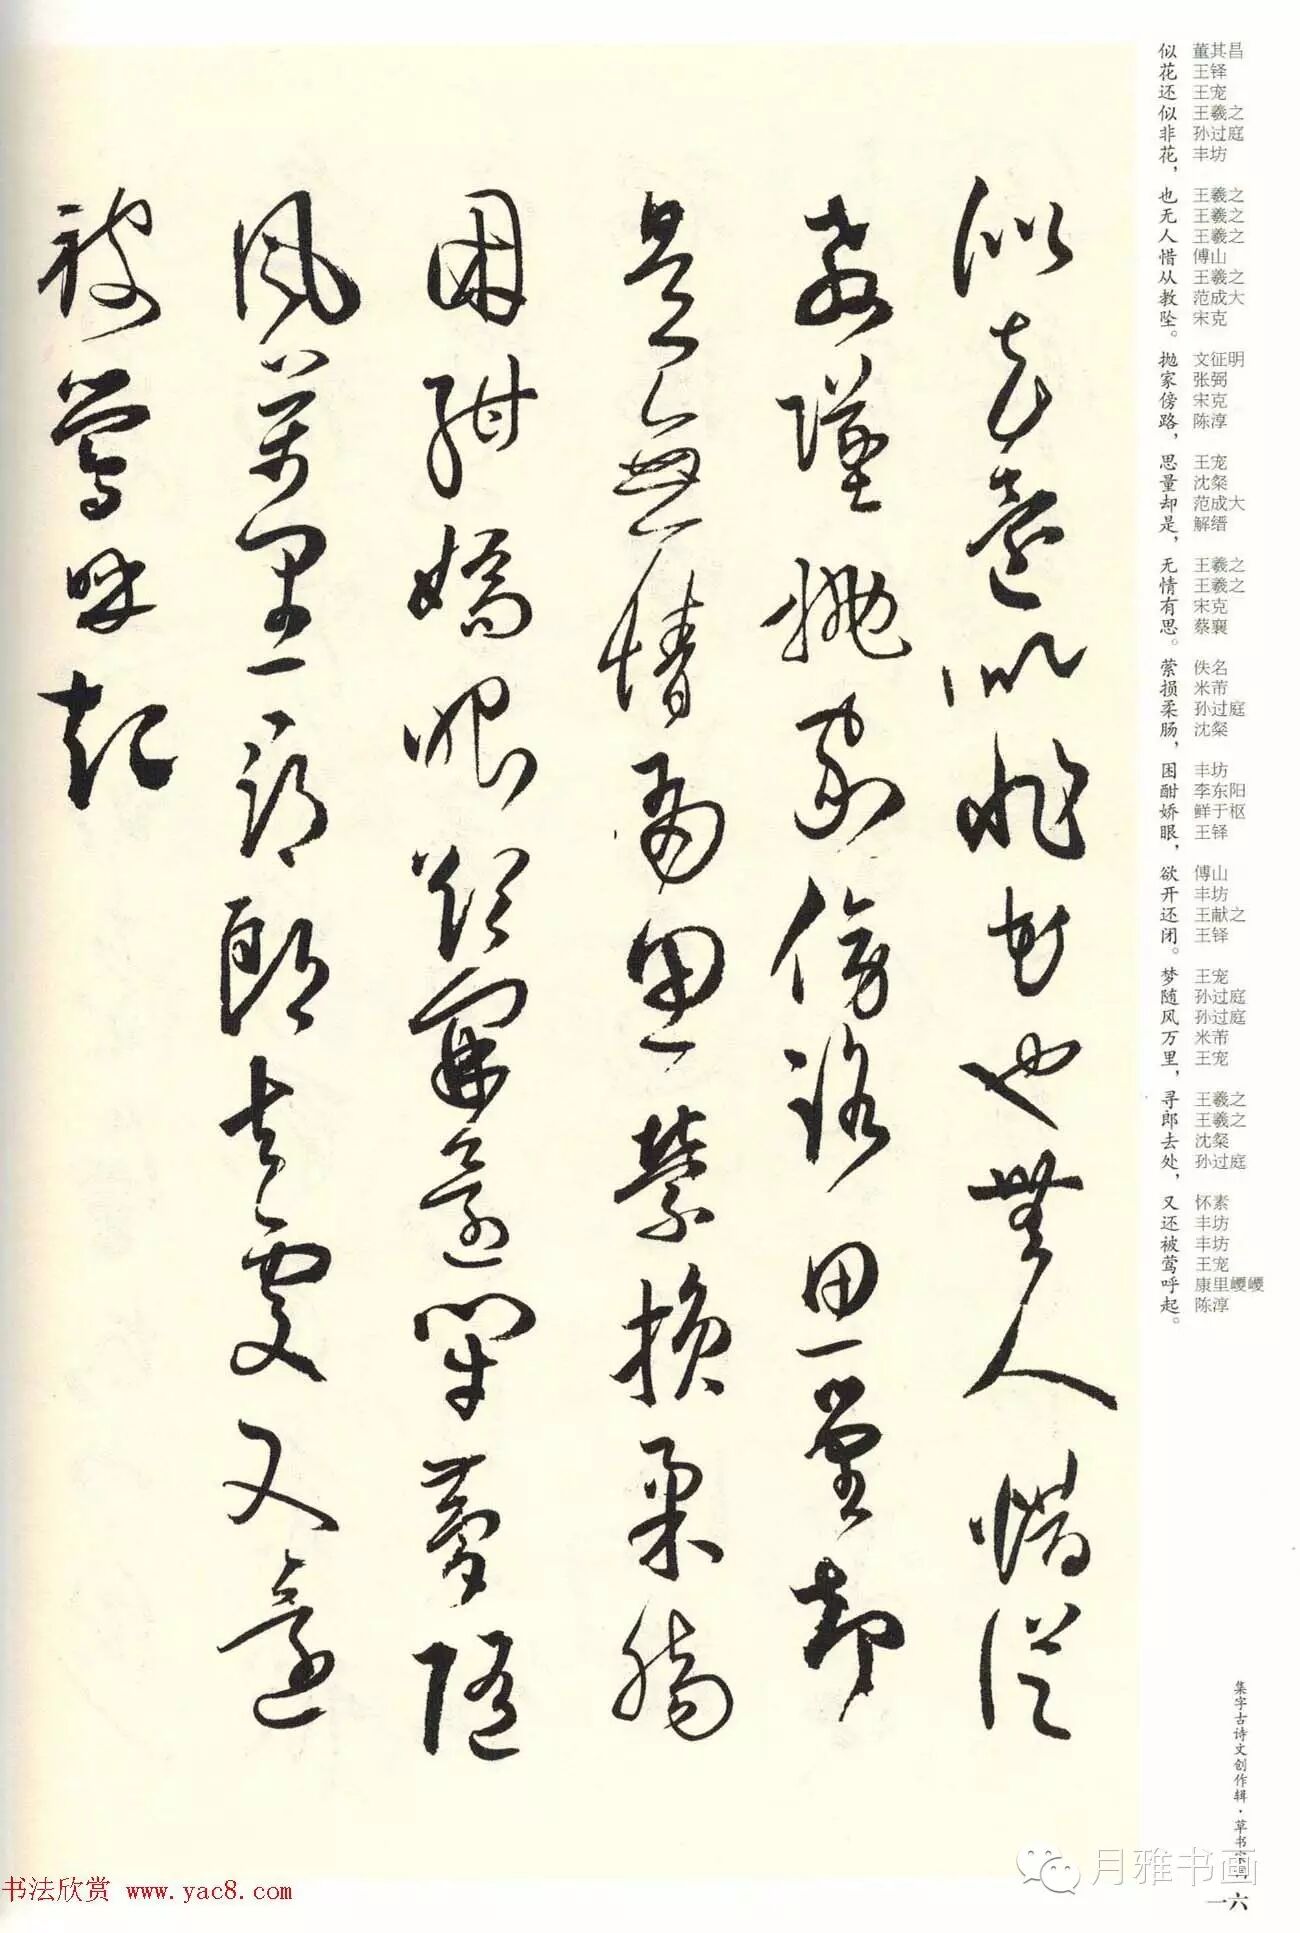 似花还似非花也无人惜从
教坠抛家傍路思量却
是無情有思萦损柔肠
困酣娇眼欲開还闭梦随
风万里寻郎去处又还
被莺呼起
似花还似非花，也无人惜从教坠。抛家傍路，思量却是，无情有思。萦损柔肠，困酣娇眼，欲开还闭。梦随风万里，寻郎去处，又还被莺呼起。
董其昌
王铎
王宠
王羲之
孙过庭
丰坊
王羲之
王羲之
王羲之
傅山
王羲之
范成大
宋克
文征明
张弼
宋克
陈淳
王宠
沈粲
范成大
解缙
王羲之
王羲之
宋克
蔡襄
佚名
米芾
孙过庭
沈粲
丰坊
李东阳
鲜于枢
王铎
傅山
丰坊
王献之
王铎
王宠
孙过庭
孙过庭
米芾
王宠
王羲之
王羲之
沈粲
孙过庭
怀素
丰坊
丰坊
王宠
康里巎巎
陈淳
集字古诗文创作辑·草书宋词
一六
月雅书画
书法欣赏 www.yac8.com